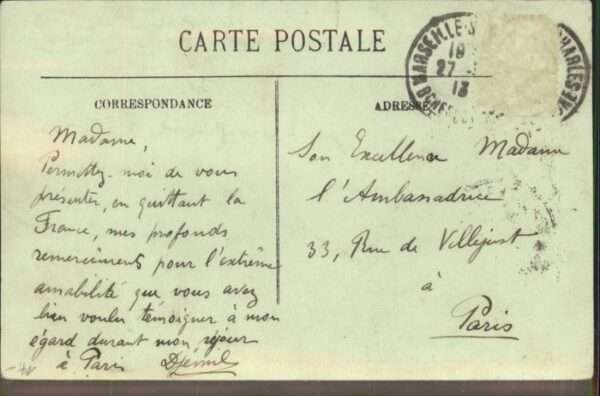 CARTE POSTALE
MARSEILLE-S CHARLES
19
27
13
CORRESPONDANCE
ADRESSE
Madame,
Permettez-moi de vous
présenter, en quittant la
France, mes profonds
remerciments pour l'extrême
amabilité que vous avez
bien voulu témoigner à mon
égard durant mon séjour
à Paris Djémil
Son Excellence Madame
l'Ambassadrice
33, Rue de Villejust
à
Paris